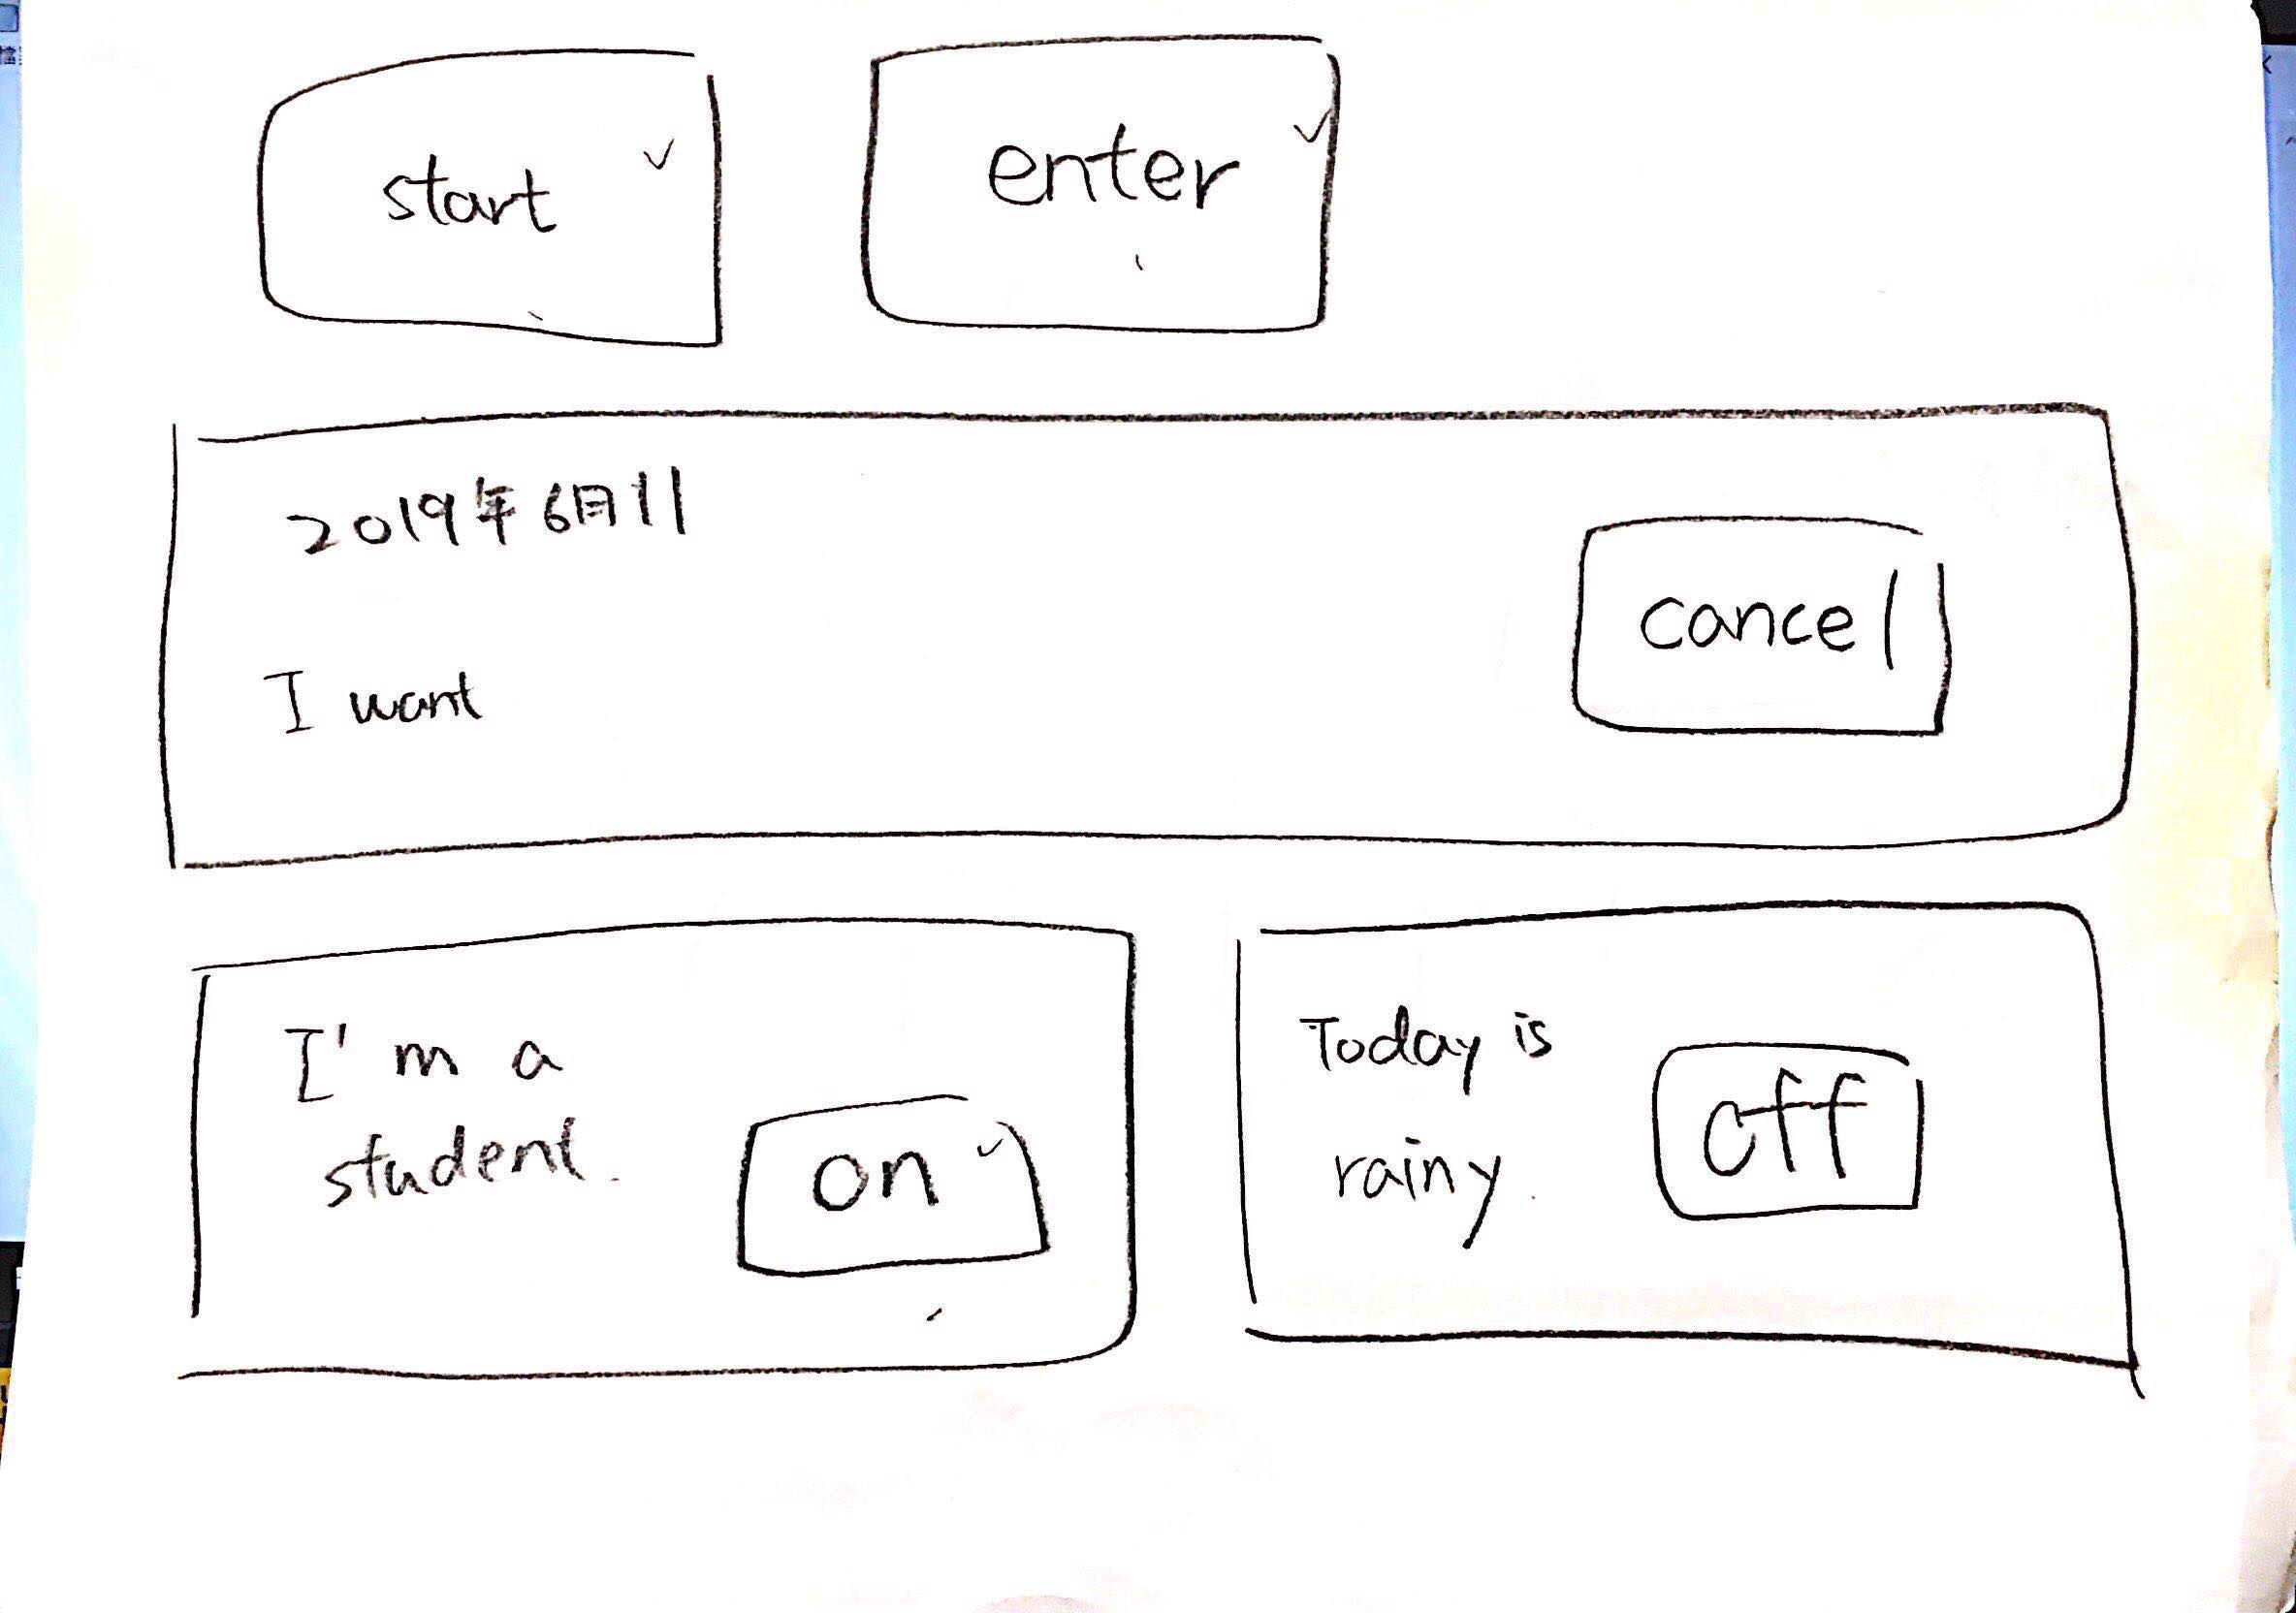 start
enter
2019年6月11
I want
cancel
I'm a
student.
on
Today is
rainy.
off